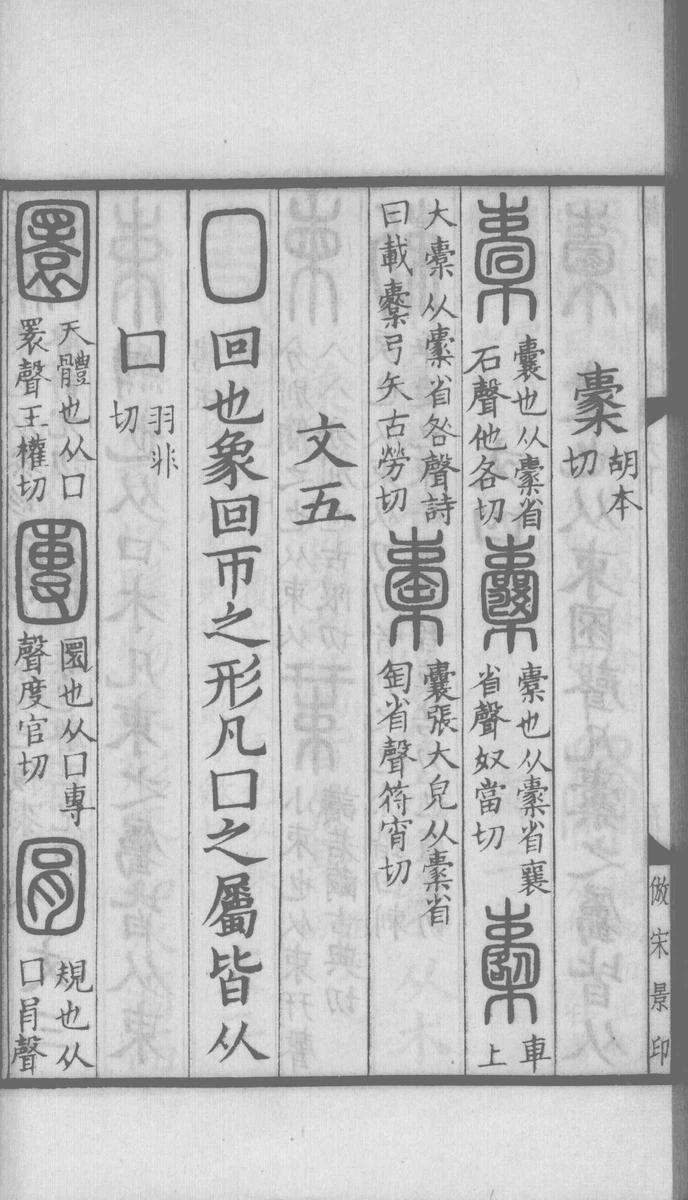 㯻胡本切
橐 囊也从㯻省石聲他各切 囊 橐也从㯻省襄省聲奴當切 櫜 車上
大橐从㯻省咎聲詩曰載櫜弓矢古勞切 㯱 囊張大皃从㯻省匋省聲符宵切
文五
囗 回也象回帀之形凡囗之屬皆从
囗羽非切
圜 天體也从囗瞏聲王權切 團 圜也从囗專聲度官切 圓 規也从囗肙聲
倣宋景印